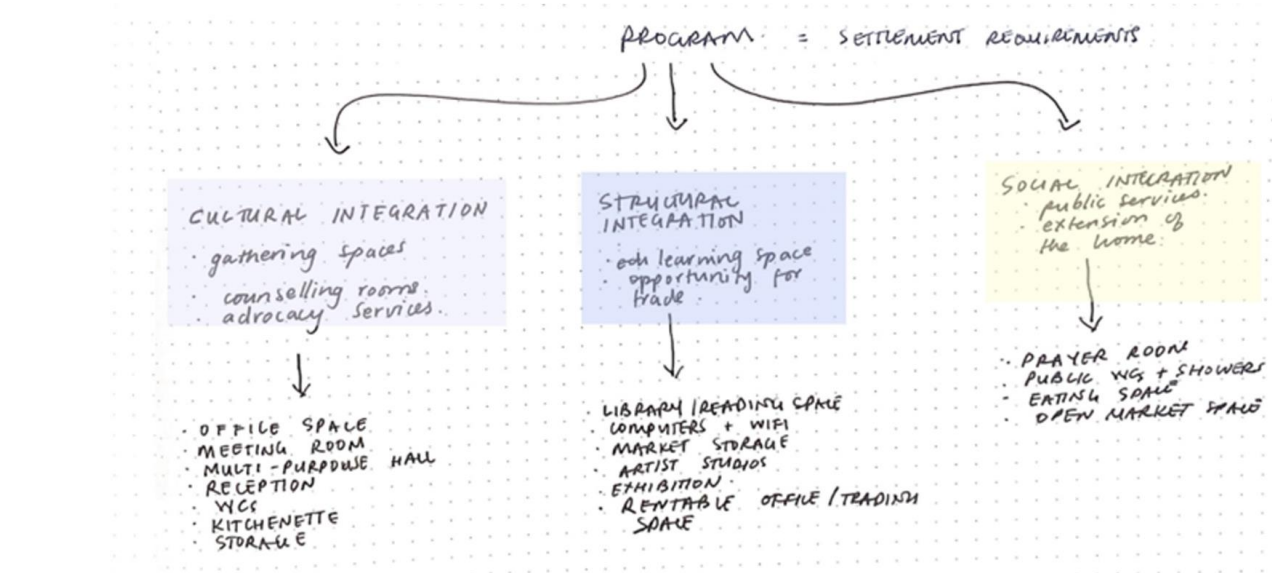 PROGRAM = SETTLEMENT REQUIREMENTS
CULTURAL INTEGRATION
· gathering spaces
· counselling rooms.
· advocacy services.
· OFFICE SPACE
· MEETING ROOM
· MULTI-PURPOUSE HALL
· RECEPTION
· WCs
· KITCHENETTE
· STORAGE
STRUCTURAL
INTEGRATION
· learning space
· opportunity for
trade.
· LIBRARY/READING SPACE
· COMPUTERS + WIFI
· MARKET STORAGE
· ARTIST STUDIOS
· EXHIBITION
· RENTABLE OFFICE/TRADING
SPACE
SOCIAL INTEGRATION
· public services.
· extension of
the home.
· PRAYER ROOM
· PUBLIC WCs + SHOWERS
· EATING SPACE
· OPEN MARKET SPACE